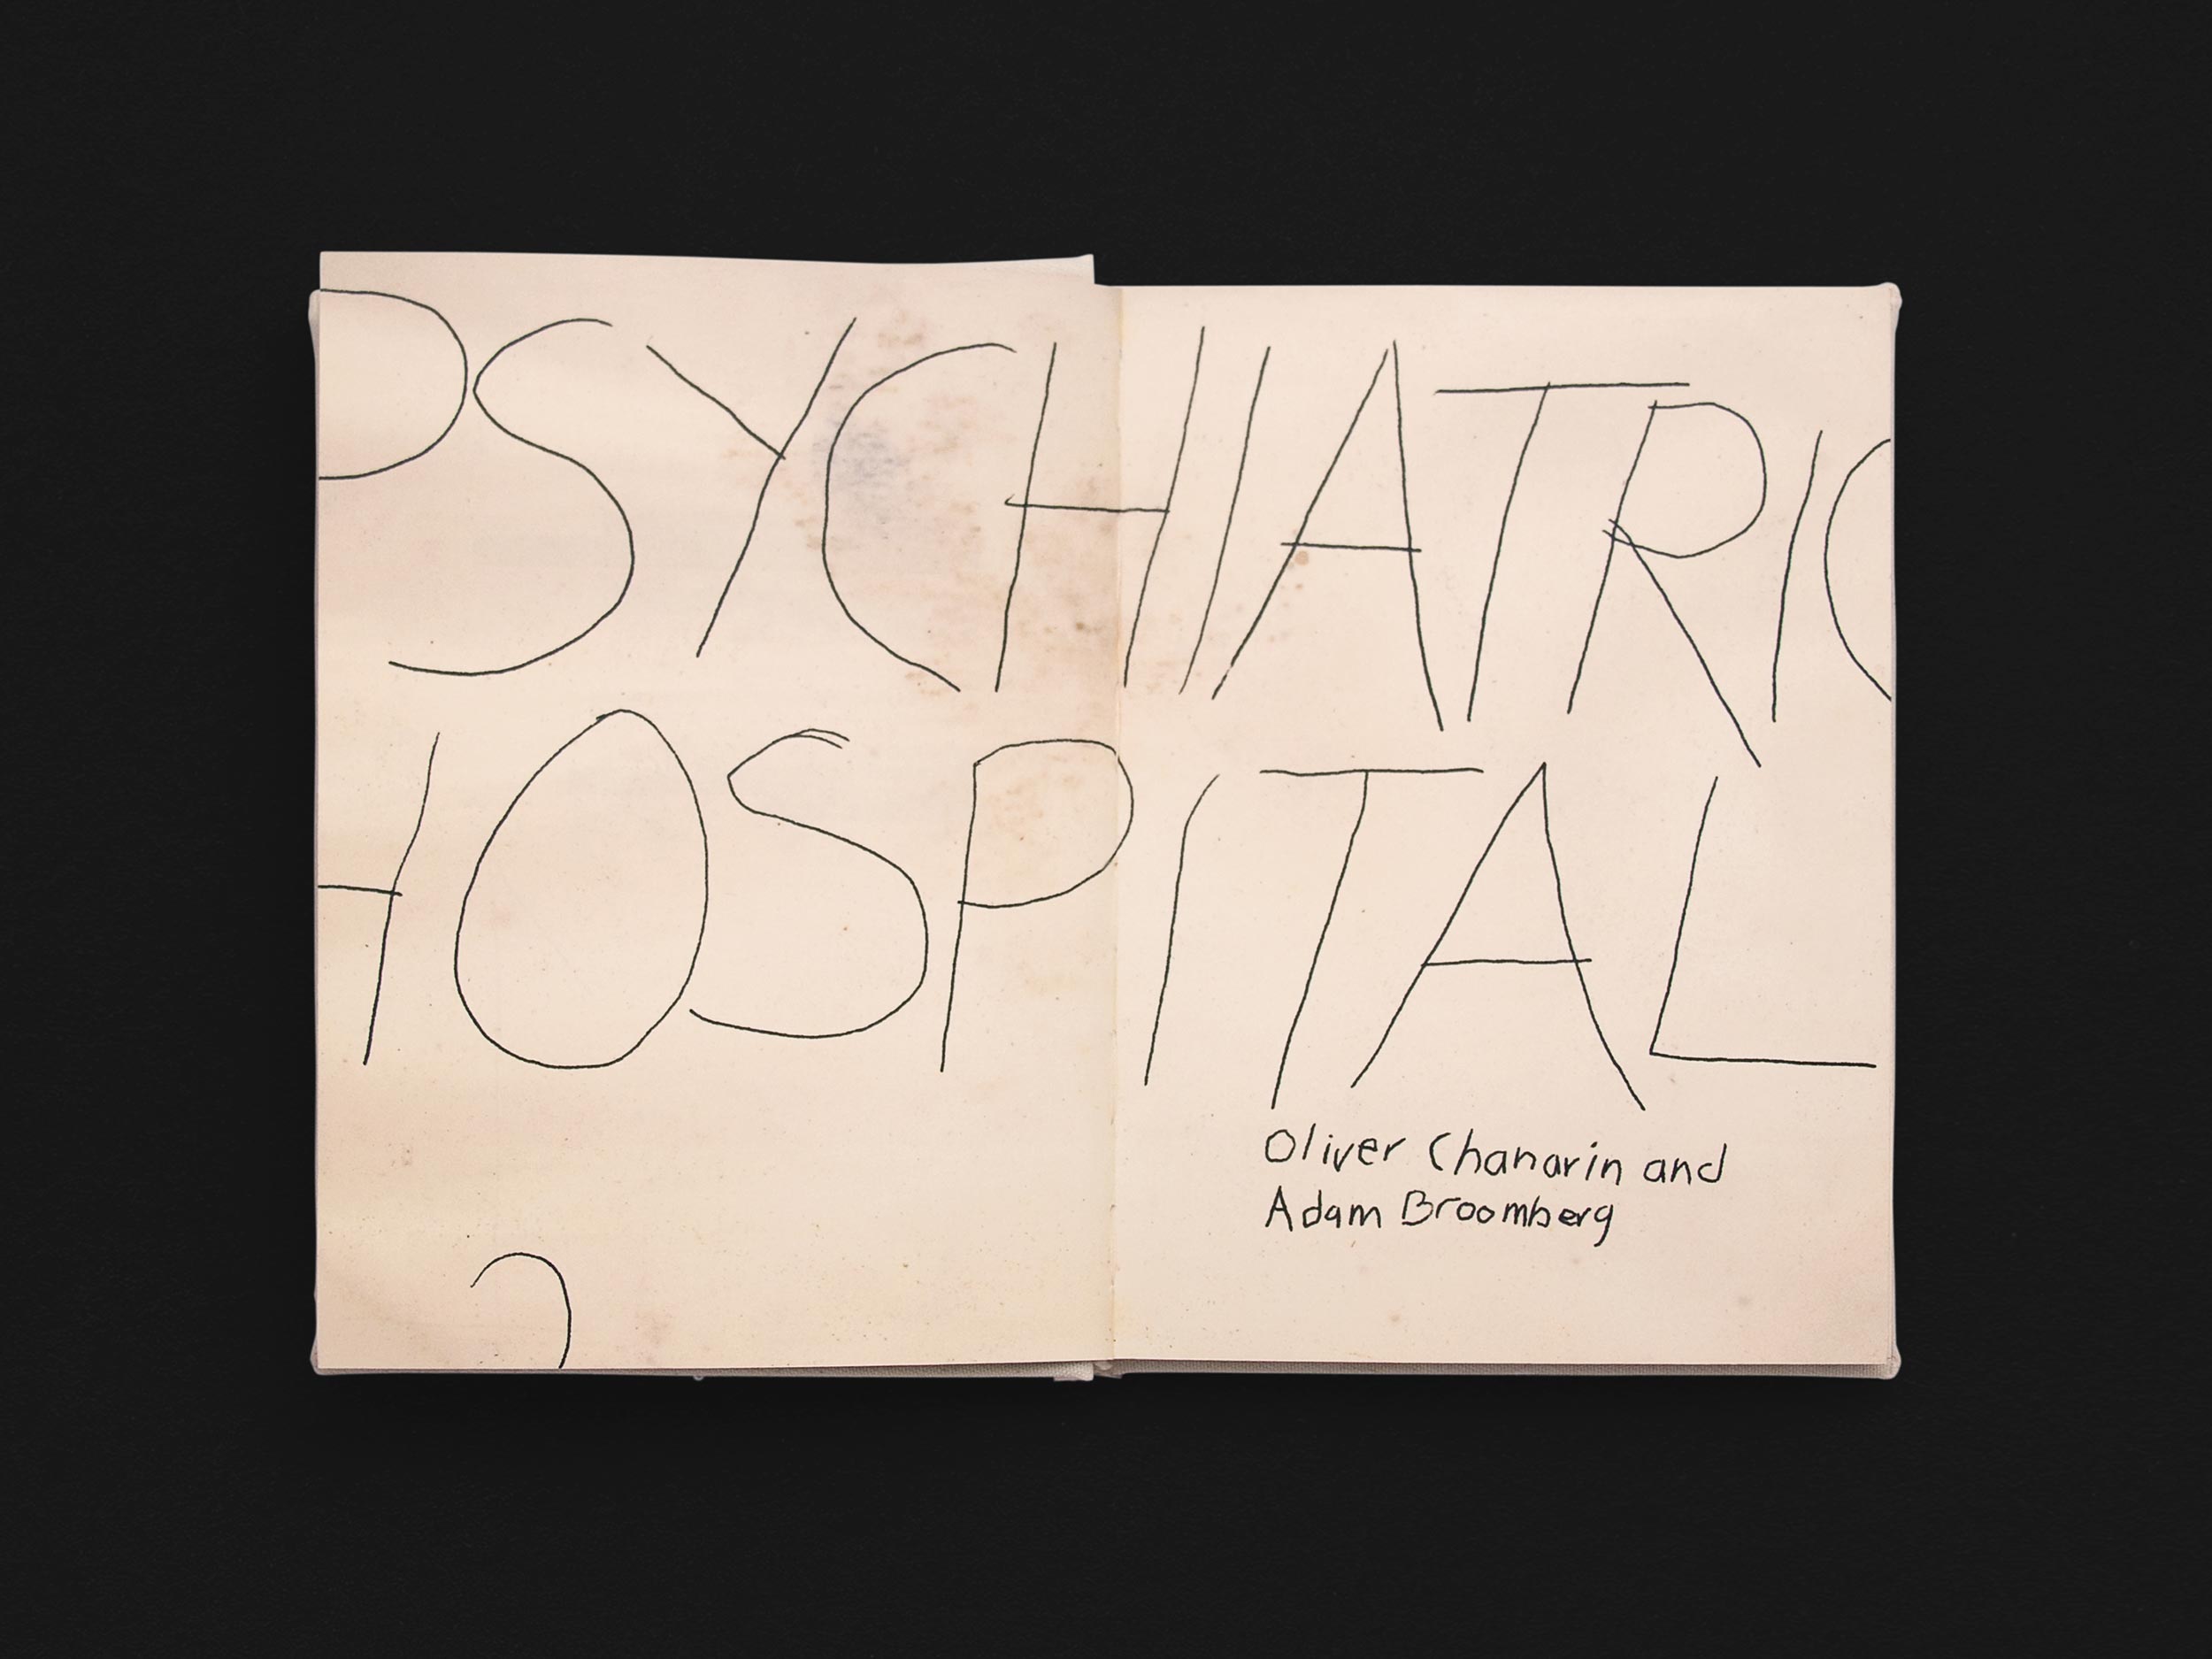 PSYCHIATRIC
HOSPITAL
Oliver Chanarin and
Adam Broomberg